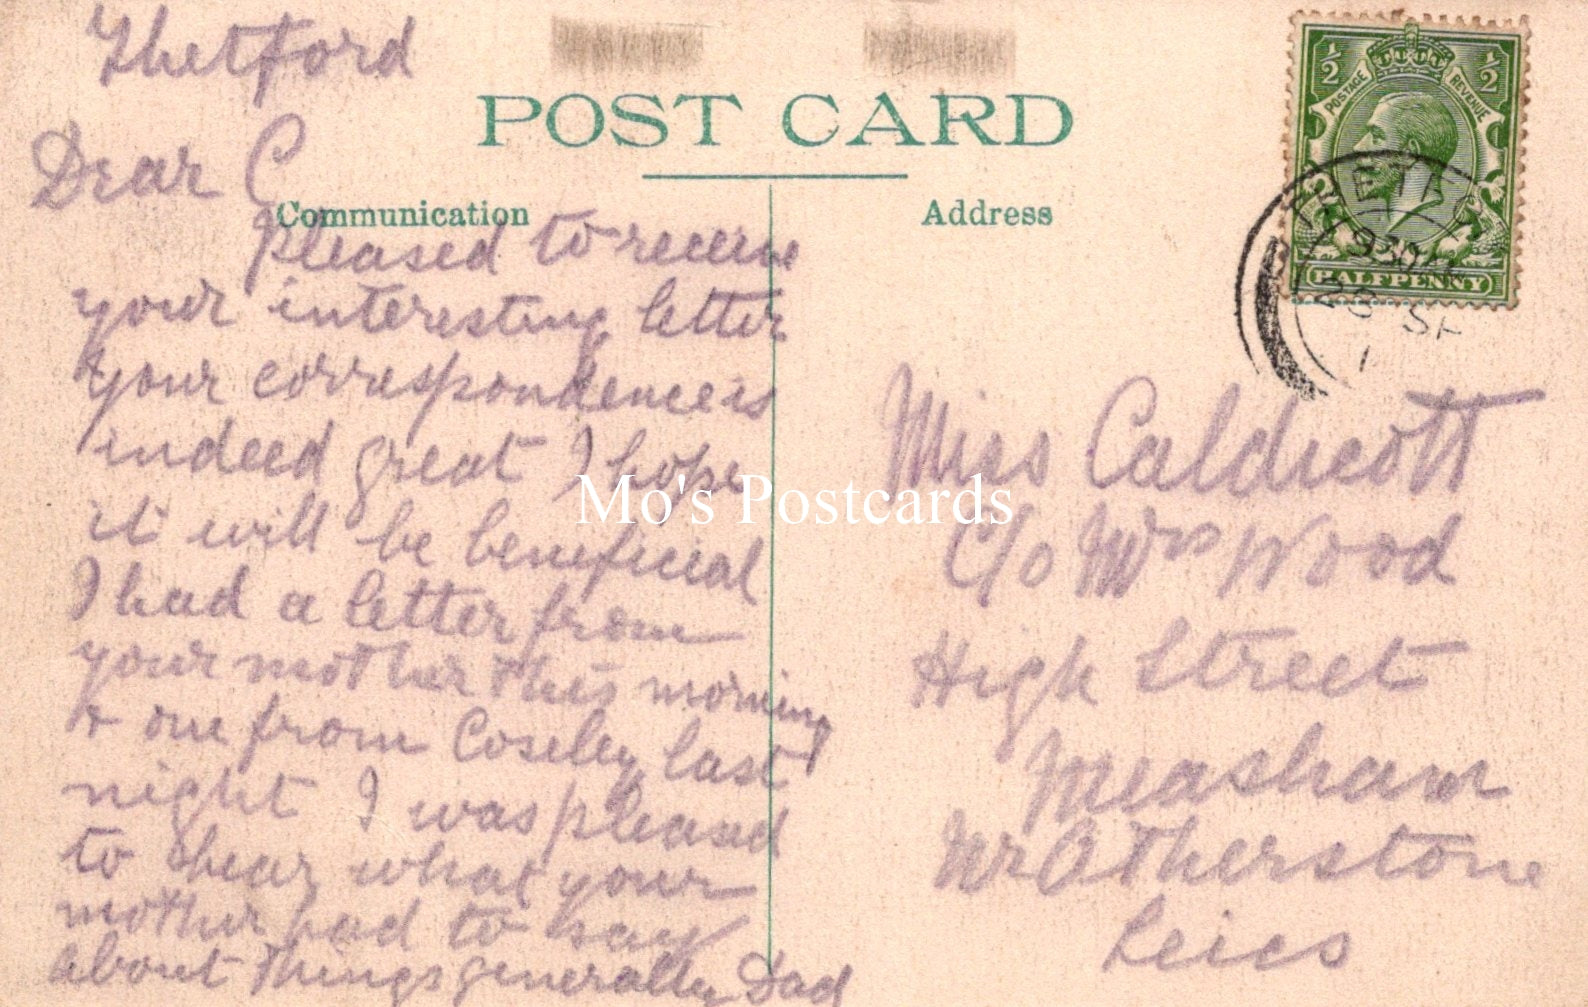 Thetford
POST CARD
Communication
Address
Dear C
pleased to receive
your interesting letter
your correspondence is
indeed great I hope
it will be beneficial
I had a letter from
your mother this morning
& one from Coseley last
night I was pleased
to hear what your
mother had to say
about things generally Dad
½ ½
POSTAGE REVENUE
HALFPENNY
THETF
930AM
25 SP
1
Miss Caldicott
C/o Mrs Wood
High Street
Measham
Nr Atherstone
Leics
Mo's Postcards